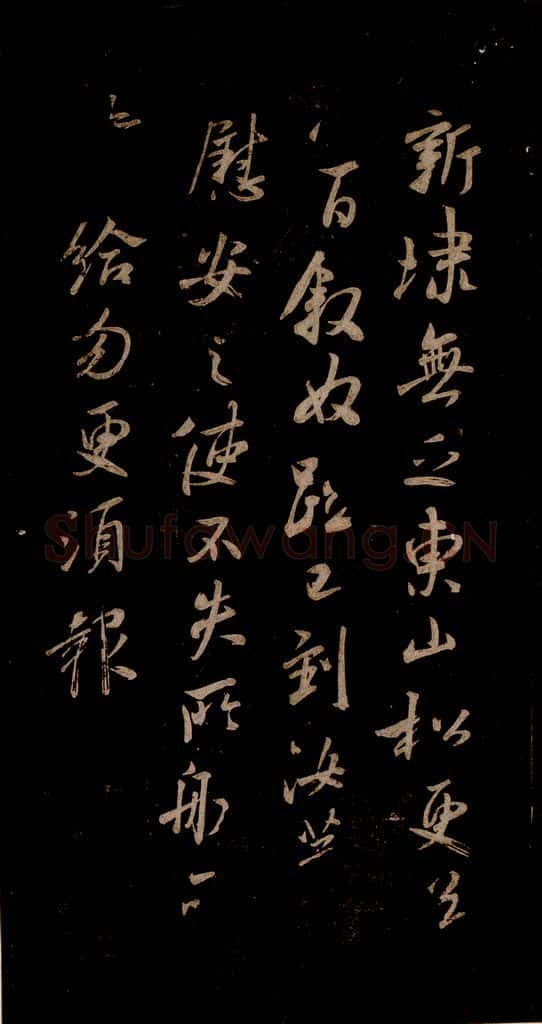 新埭無乏東山松更
百敘奴已到汝等
慰安之使不失所船
給勿更須報
Shufawang.CN